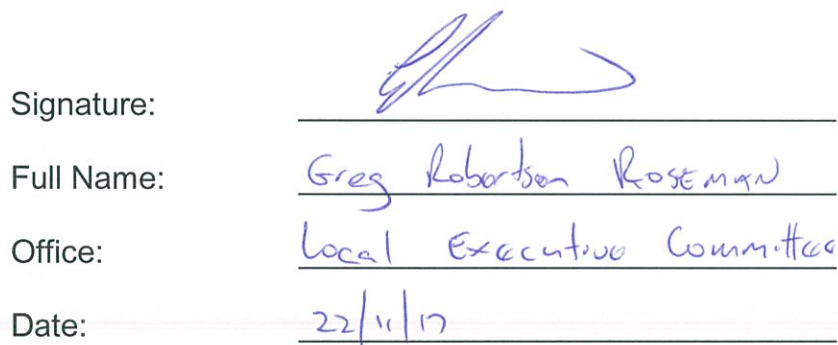 Signature:
Full Name: Greg Robertson Roseman
Office: Local Executive Committee
Date: 22/11/17